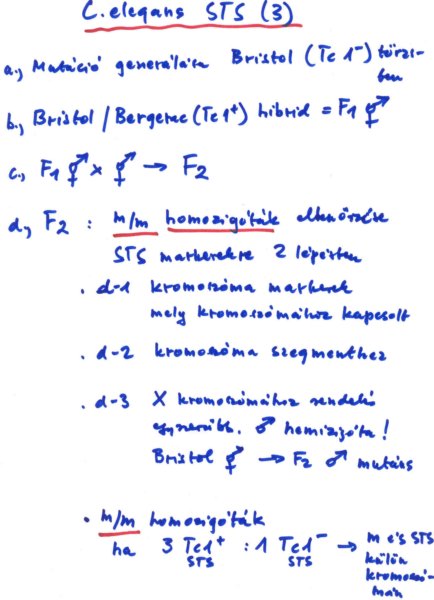 C. elegans STS (3)
a., Mutáció generálása Bristol (Tc1⁻) törzs-
ben
b., Bristol / Bergerec (Tc1⁺) hibrid = F1 ⚥
c., F1 ⚥ x ⚥ → F2
d., F2 : m/m homozigóták ellenőrzése
STS markerekre 2 lépésben
. d-1 kromoszóma markerek
mely kromoszómához kapcsolt
. d-2 kromoszóma szegmenthez
. d-3 X kromoszómához rendelés
egyszerűbb. ♂ hemizigóta!
Bristol ⚥ → F2 ♂ mutáns
• m/m homozigóták
ha 3 Tc1⁺ : 1 Tc1⁻ → m és STS
STS STS külön
kromoszó-
mán